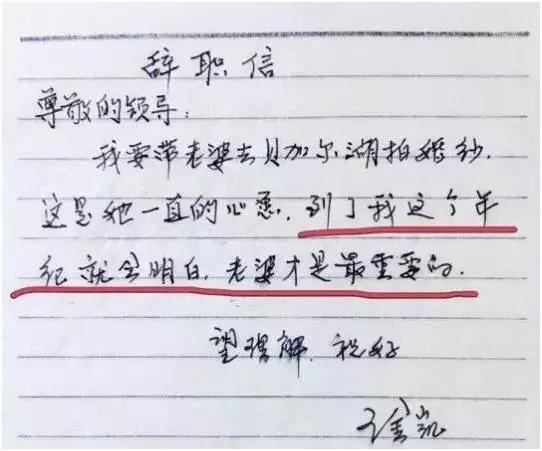 辞职信
尊敬的领导:
我要带老婆去贝加尔湖拍婚纱.
这是她一直的心愿.到了我这个年
纪就会明白.老婆才是最重要的.
望理解.祝好
徐凯